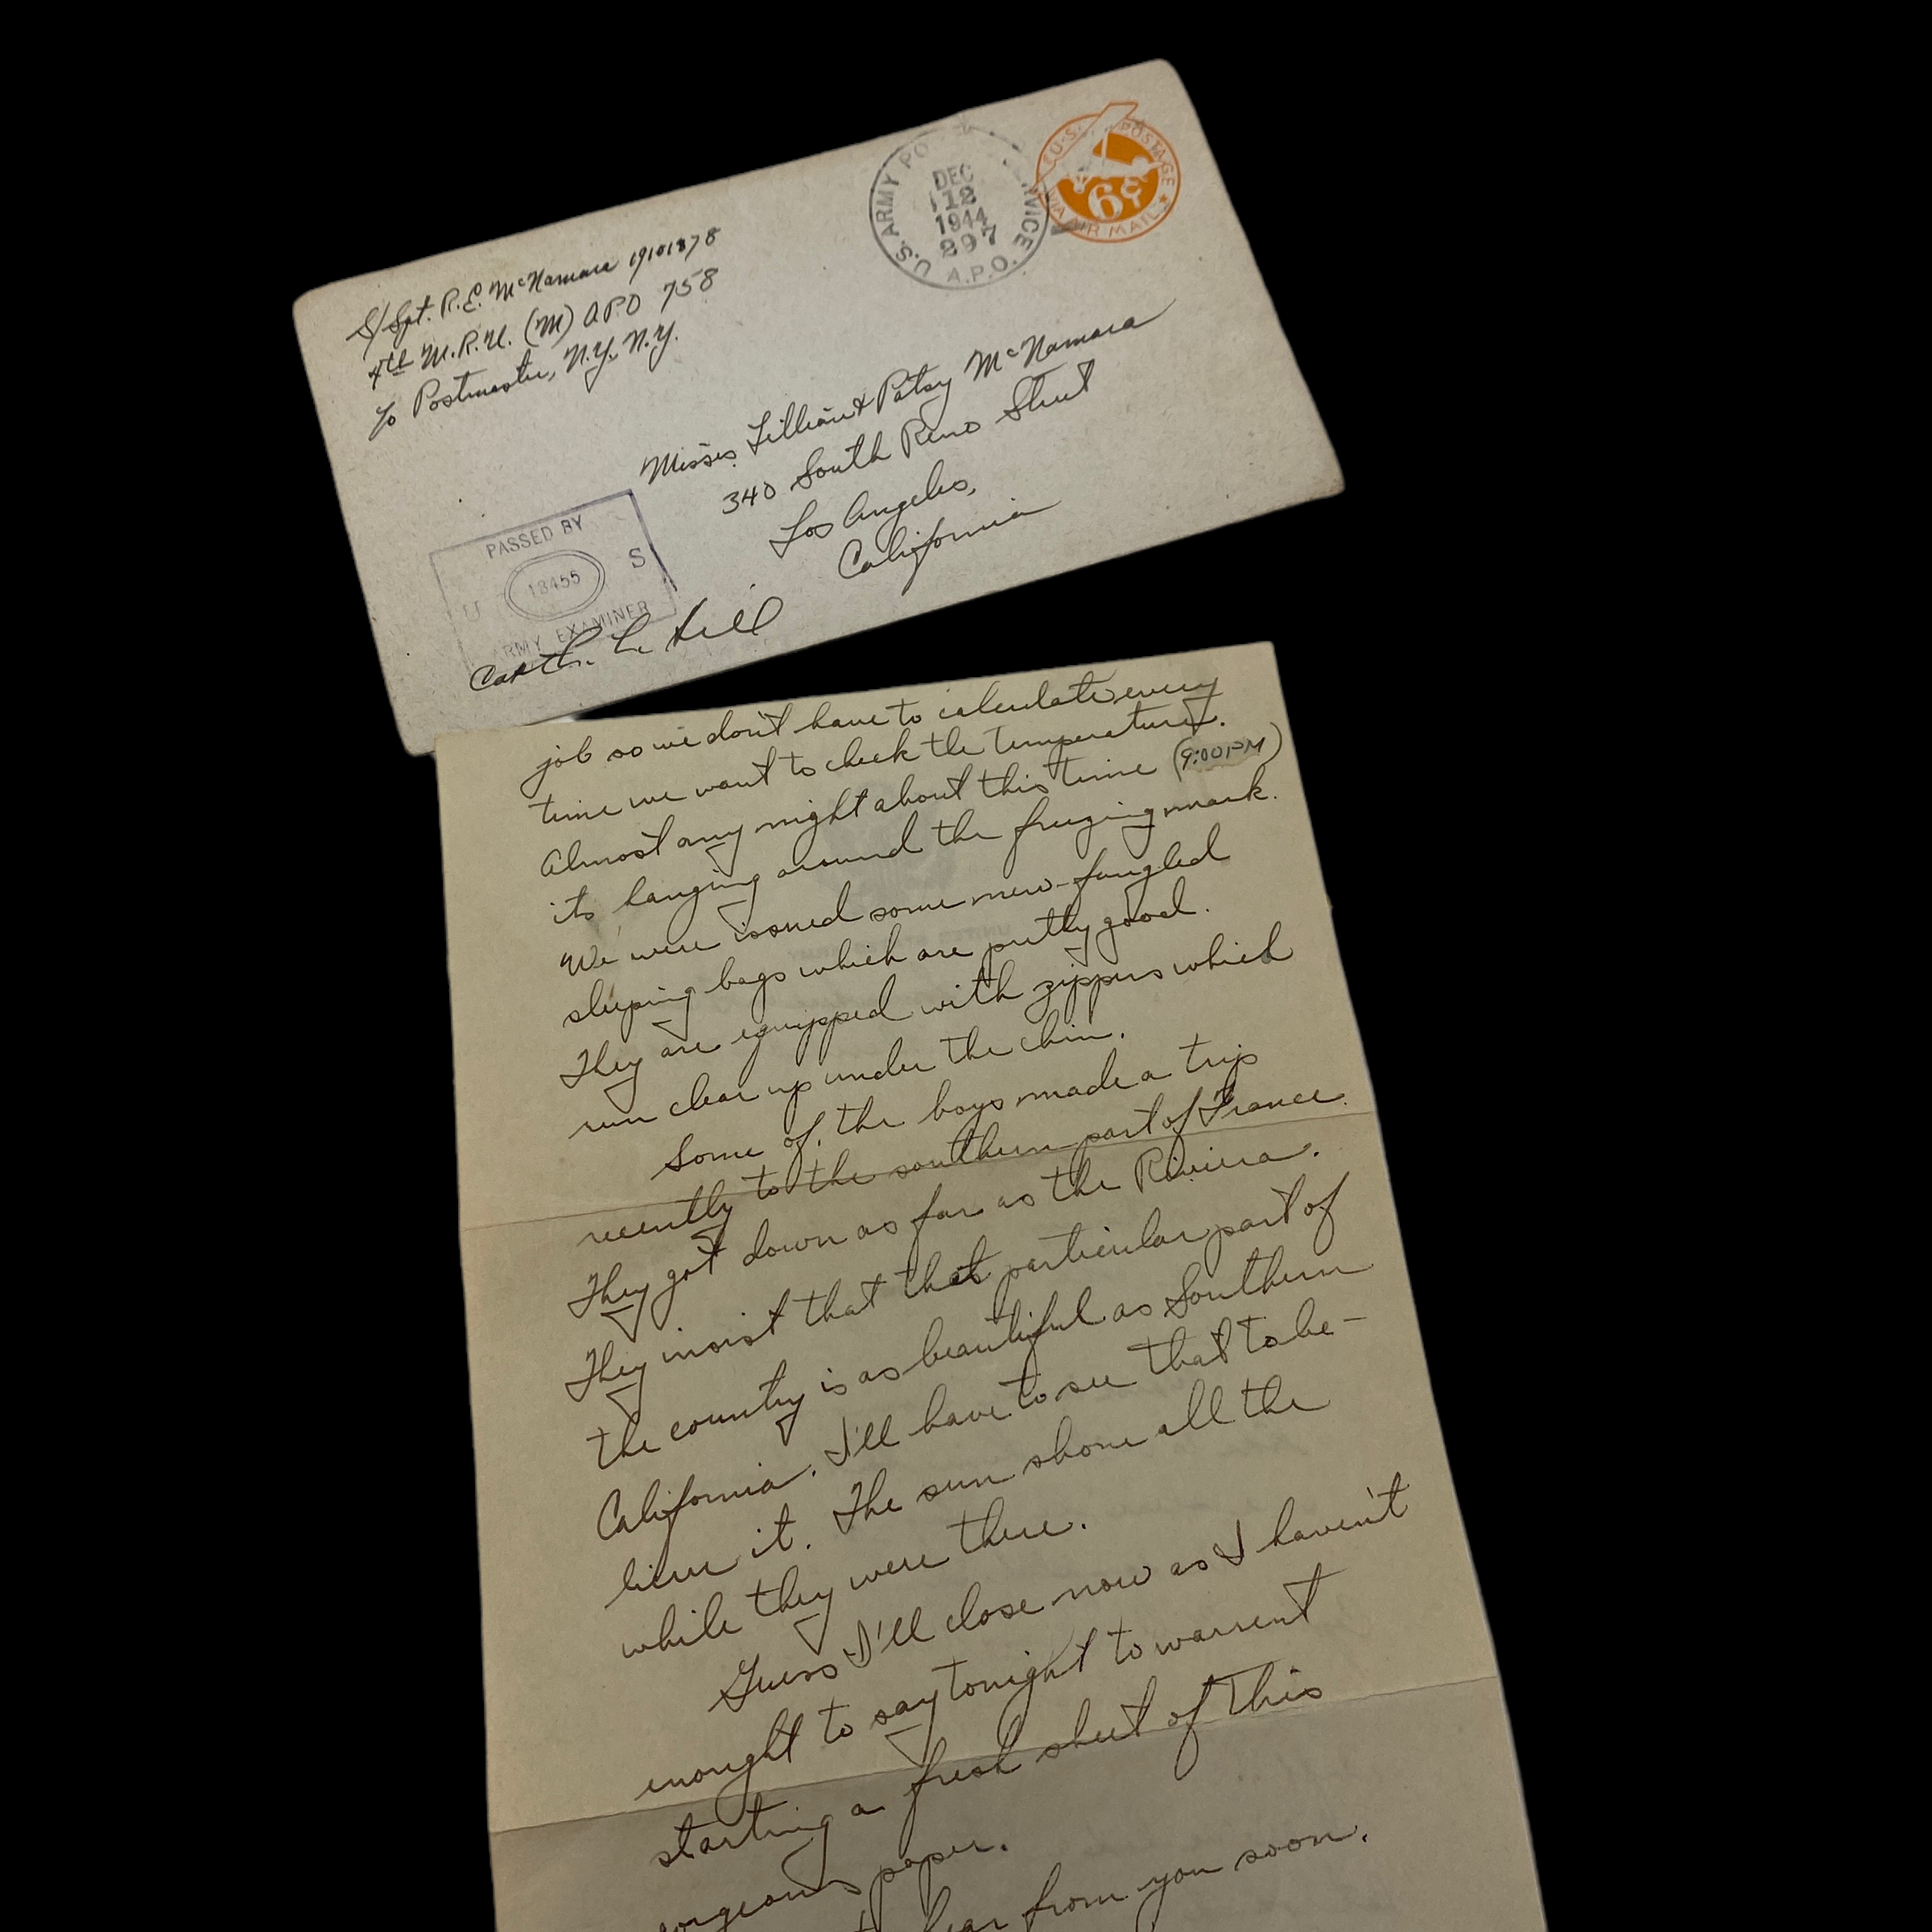 S/Sgt. R.E. McNamara 19101878
4th M.R.U. (M) APO 758
c/o Postmaster, N.Y. N.Y.
U.S. ARMY PO VICE
DEC
12
1944
297
A.P.O.
U.S. POSTAGE
6¢
VIA AIR MAIL
Misses Lillian & Patsy McNamara
340 South Reno Street
Los Angeles,
California
PASSED BY
U 18455 S
ARMY EXAMINER
Hill
job so we don't have to calculate every
time we want to check the temperature.
Almost any night about this time (9:00 PM)
its hanging around the freezing mark.
We were issued some new-fangled
sleeping bags which are pretty good.
They are equipped with zippers which
run clear up under the chin.
Some of the boys made a trip
recently to the southern part of France.
They got down as far as the Riviera.
They insist that that particular part of
the country is as beautiful as Southern
California. I'll have to see that to be-
lieve it. The sun shone all the
while they were there.
Guess I'll close now as I haven't
enought to say tonight to warrent
starting a fresh sheet of this
paper.
hear from you soon.